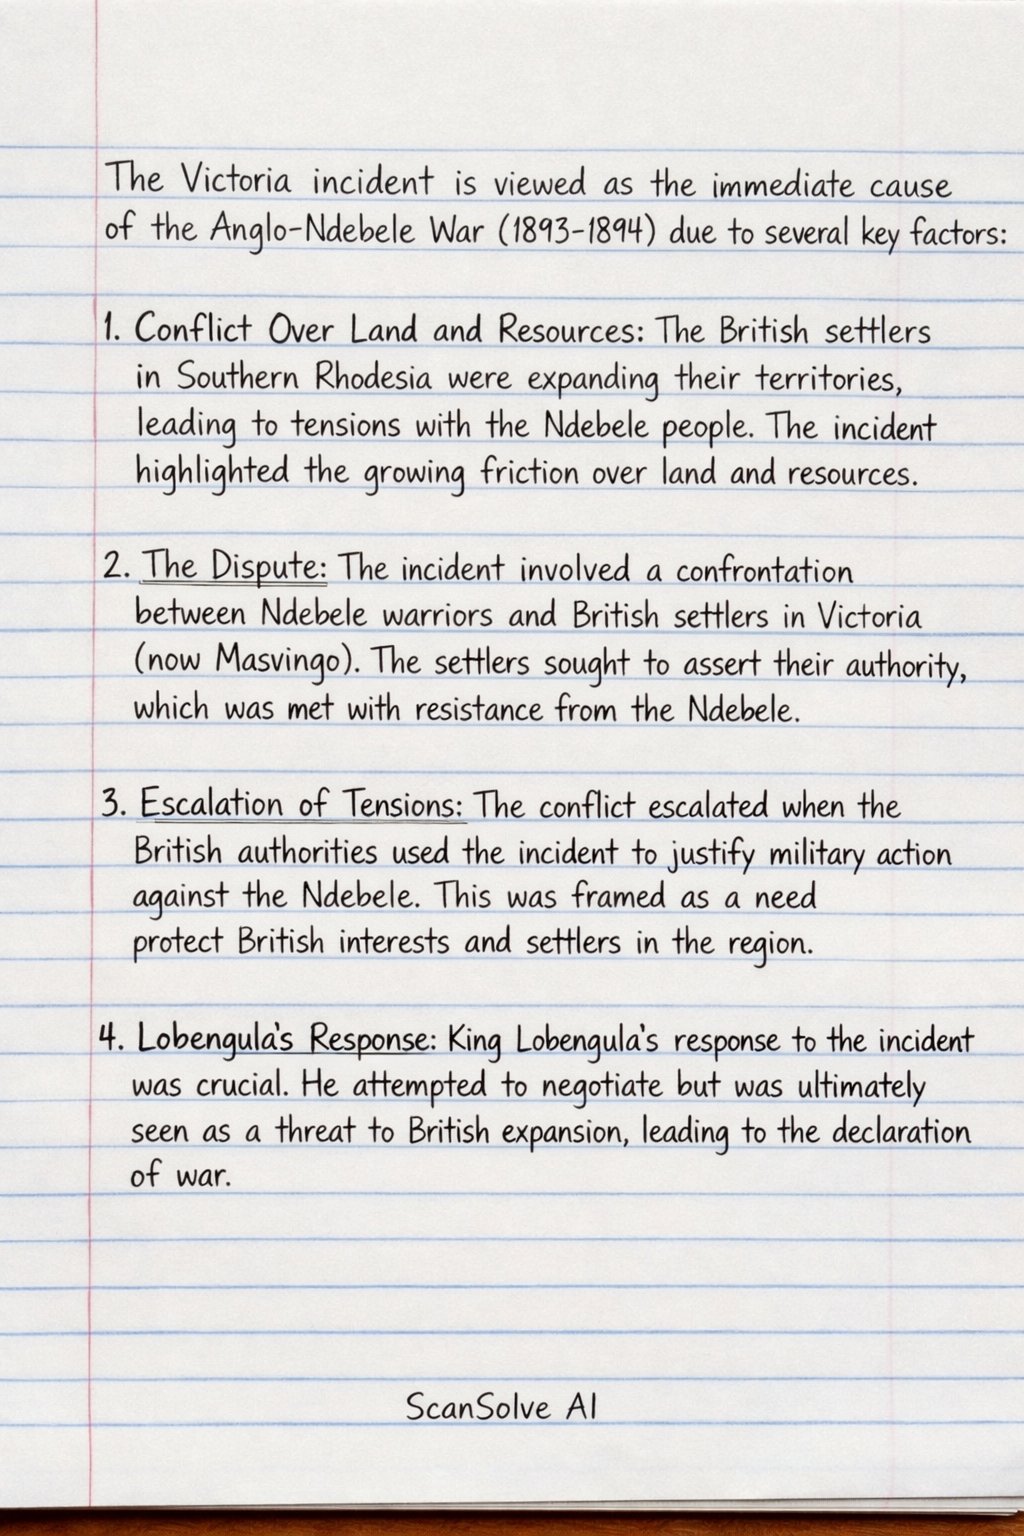 The Victoria incident is viewed as the immediate cause
of the Anglo-Ndebele War (1893-1894) due to several key factors:
1. Conflict Over Land and Resources: The British settlers
in Southern Rhodesia were expanding their territories,
leading to tensions with the Ndebele people. The incident
highlighted the growing friction over land and resources.
2. The Dispute: The incident involved a confrontation
between Ndebele warriors and British settlers in Victoria
(now Masvingo). The settlers sought to assert their authority,
which was met with resistance from the Ndebele.
3. Escalation of Tensions: The conflict escalated when the
British authorities used the incident to justify military action
against the Ndebele. This was framed as a need
protect British interests and settlers in the region.
4. Lobengula's Response: King Lobengula's response to the incident
was crucial. He attempted to negotiate but was ultimately
seen as a threat to British expansion, leading to the declaration
of war.
ScanSolve AI